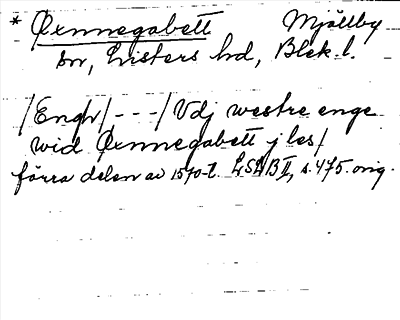 * Øxnnegabett Mjällby
sn, Listers hd, Blek. l.
/Engh/ - - -/ Vdj westre enge
wid Øxnnegabett j les/
förra delen av 1570-t. LSLB II, s. 475. orig.